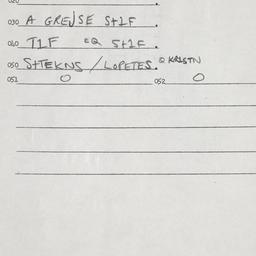 020 .
030 A GREUSE S+1F .
040 T1F EQ S+1F .
050 S+TEKNS / LOPETES. @ KRISTN
051 O 052 O